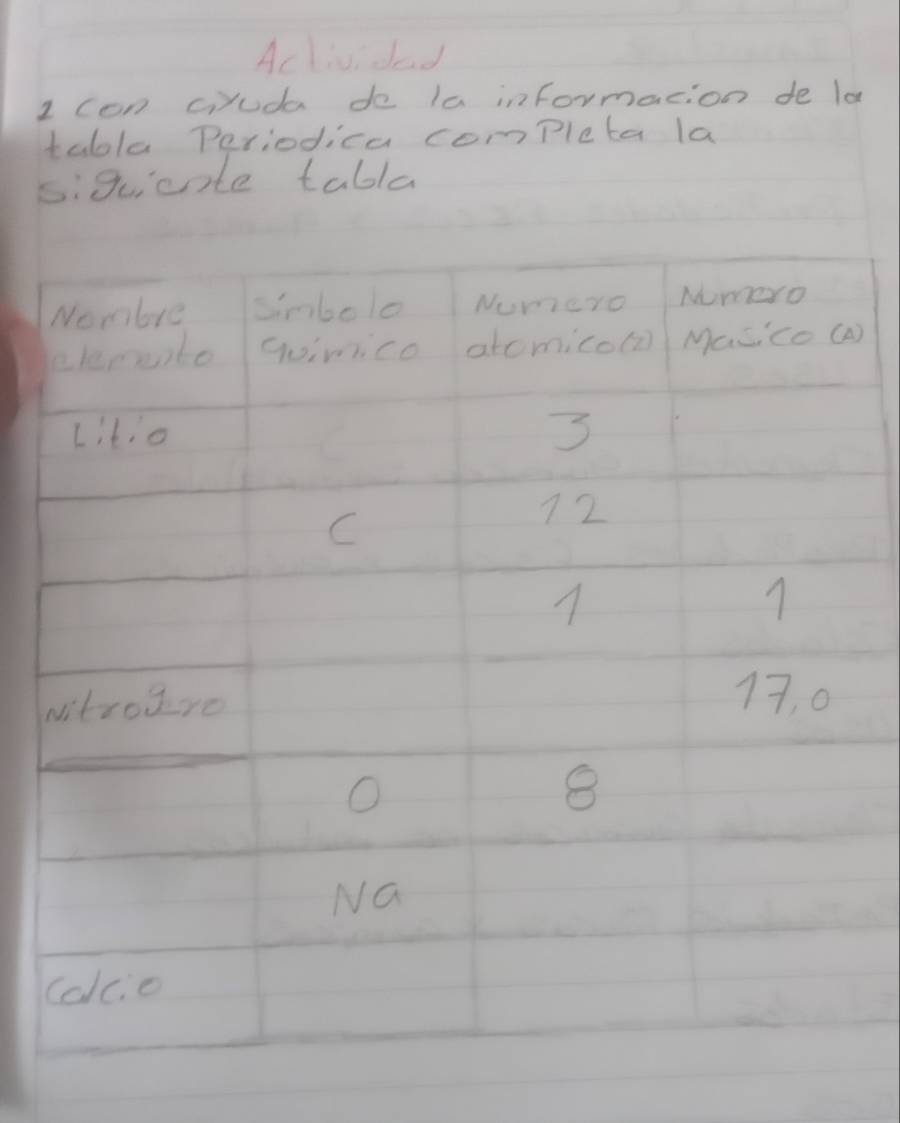 Actividad
1 con ayuda de la informacion de la
tabla Periodica completa la
siguiente tabla
Nombre elemento Simbolo quimico Numero atomico(z) Numero Masico (A)
Litio 3
C 12
1 1
Nitrogeno 17,0
O 8
Na
Calcio